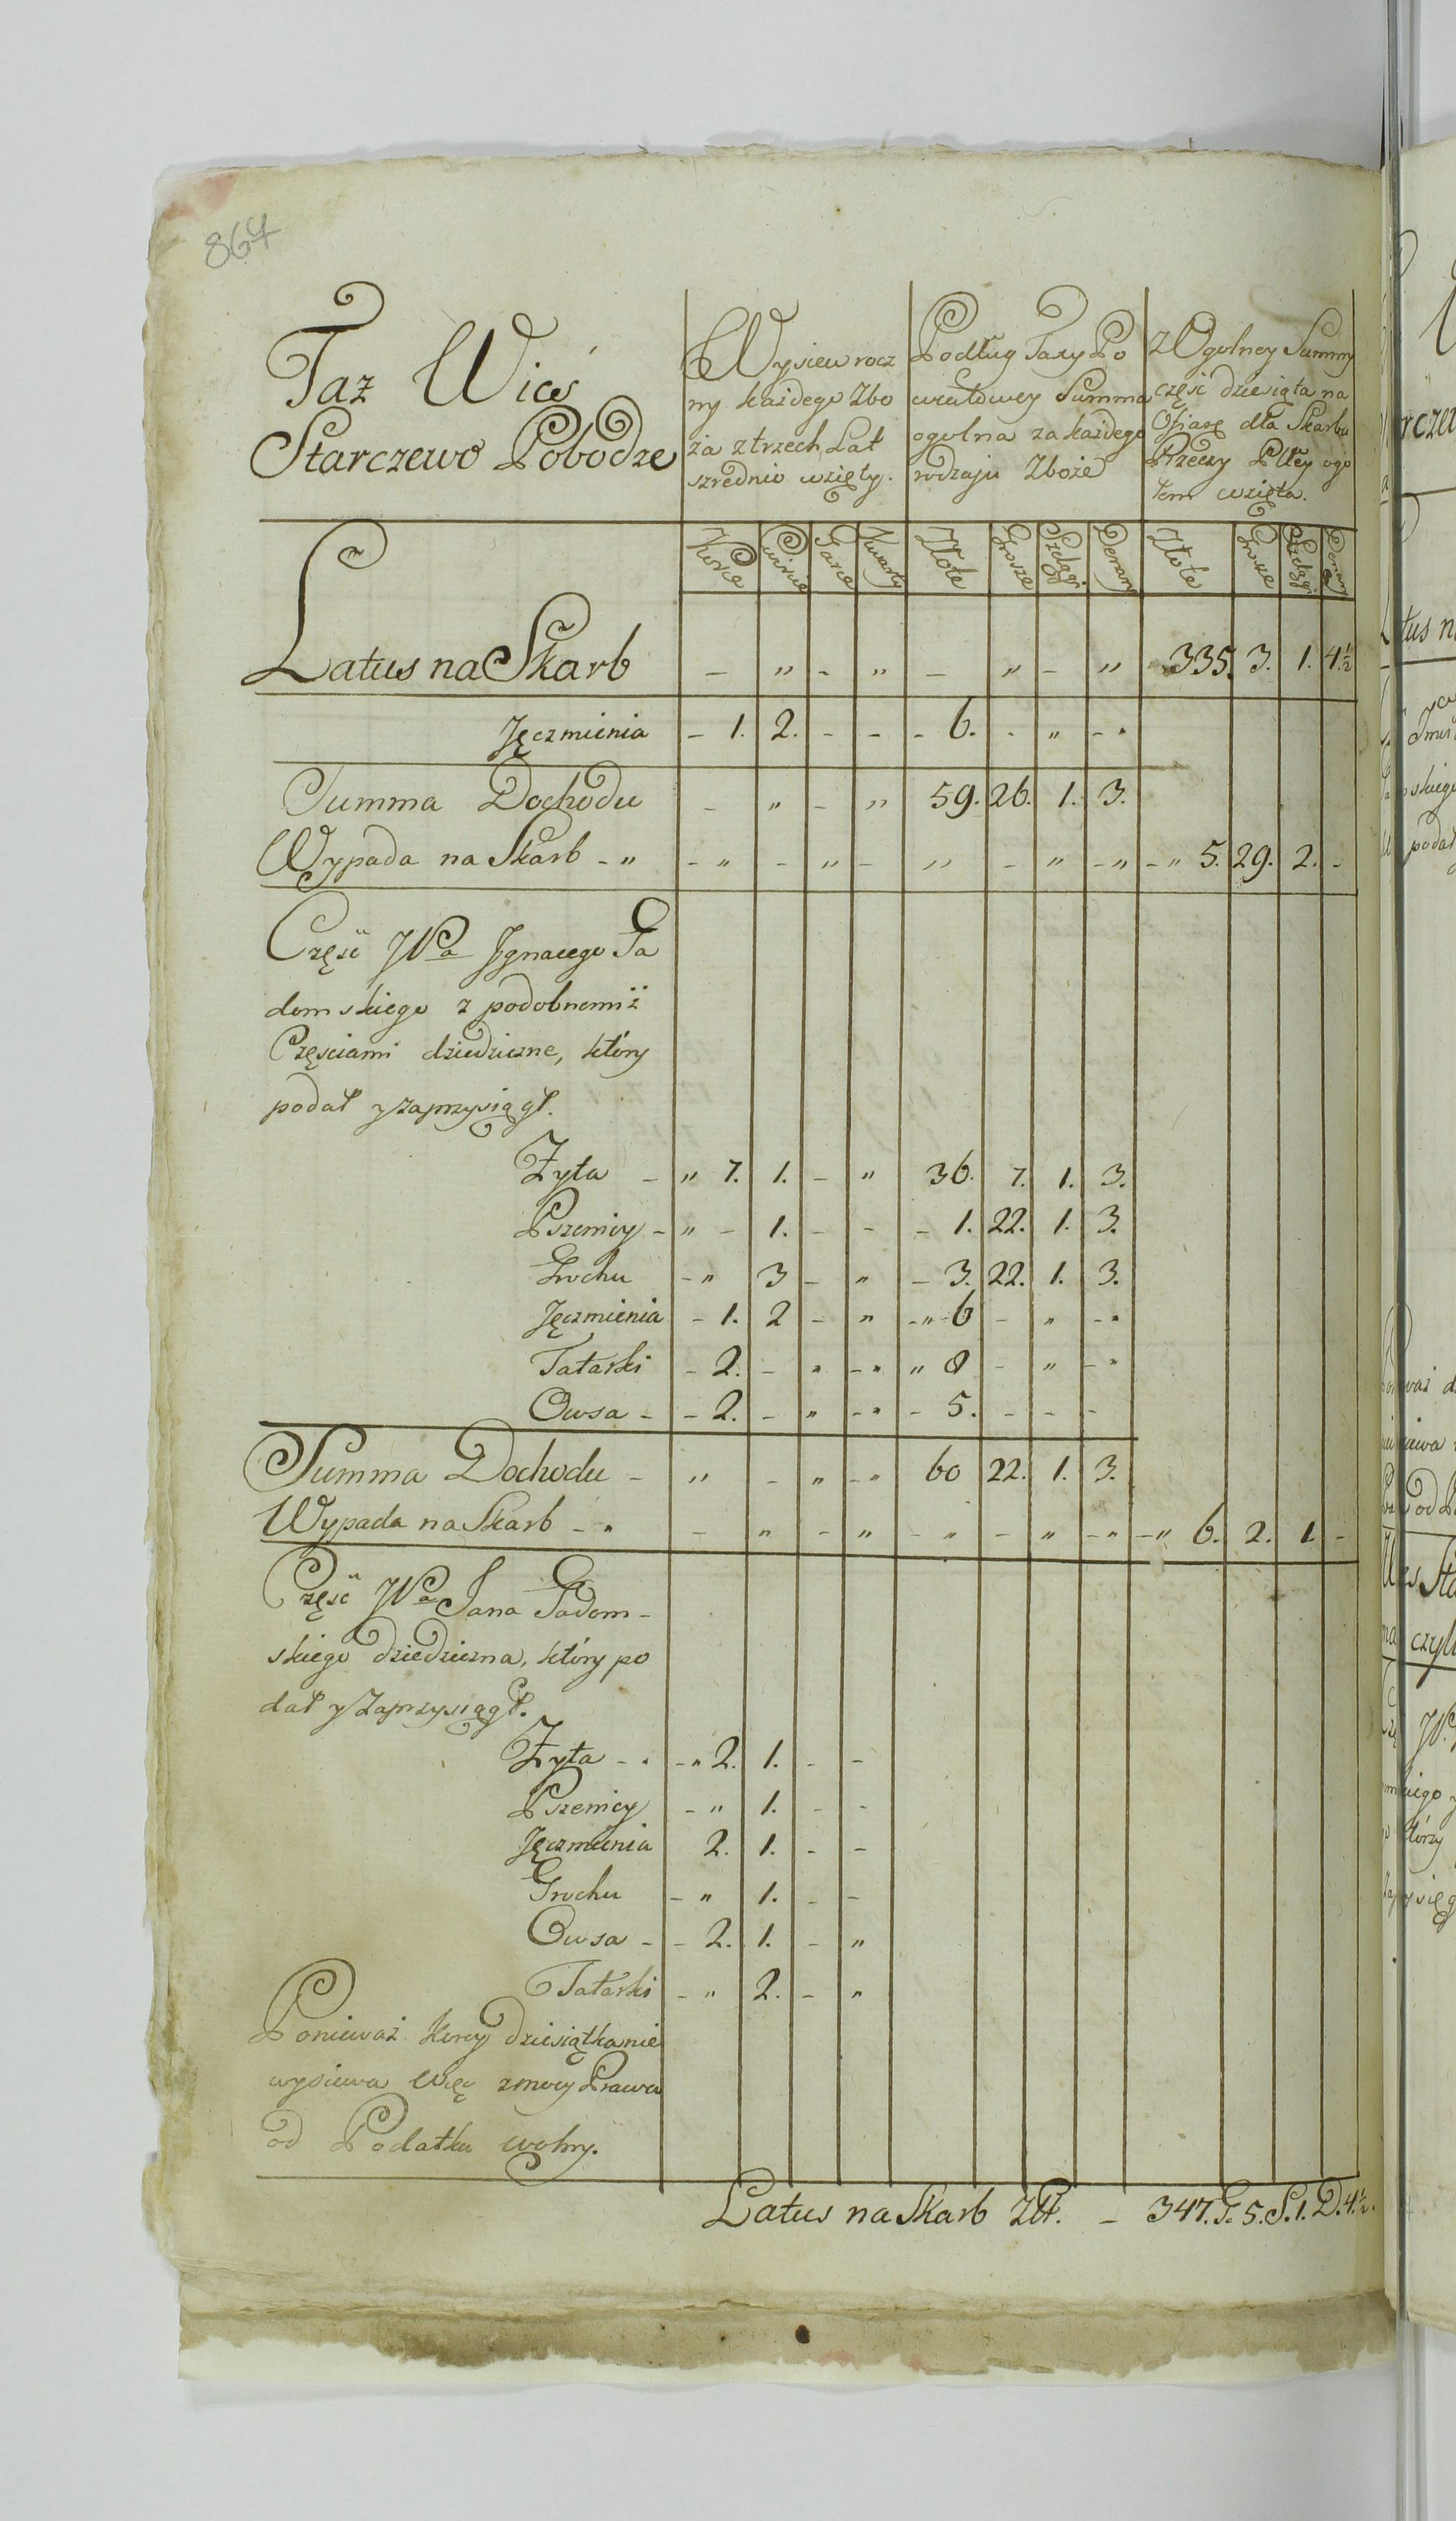 864
Taz Wieś
Starczewo Pobodze
Wysiew rocz
ny każdego Zbo
ża z trzech Lat
szrednio wzięty.
Podług Taxy Po
wiatowey Summa
ogolna za każdego
rodzaju Zboże
Z Ogolney Summy
część dziesiąta na
Ofiarę dla Skarbu
Rzeczy Pltey ogo
łem wzięta.
Korce Cwircie Garce Kwarty Złote Grosze Szelągi Denary Złote Grosze Szelągi Denary
Latus na Skarb - " - " - " - " 335. 3. 1. 4½
Jęczmienia - 1. 2. - - - 6. - " - "
Summa Dochodu - " - " 59. 26. 1. 3.
Wypada na Skarb - " - " - " - " - " - " - " 5. 29. 2. -
Część JPa Jgnacego Ta
domskiego z podobnemiż
Częściami dziedziczne, który
podał y zaprzysiągł.
Żyta - " 7. 1. - " 36. 7. 1. 3.
Pszenicy - " - 1. - - - 1. 22. 1. 3.
Grochu - " 3 - " - 3. 22. 1. 3.
Jęczmienia - 1. 2 - " - " - 6 - " - "
Tatarki - 2. - " - " " 8 - " - "
Owsa - - 2. - " - " - 5. - - -
Summa Dochodu - " - " - " 60 22. 1. 3.
Wypada na Skarb - " - " - " - " - " - " - " 6. 2. 1 -
Część JPa Jana Tadom-
skiego dziedziczna, który po
dał y Zaprzysiągł.
Żyta - " - " 2. 1. - -
Pszenicy - " 1. - -
Jęczmienia 2. 1. - -
Grochu - " 1. - -
Owsa - - 2. 1. - "
Tatarki - " 2. - "
Ponieważ Korcy dziesiątka nie
wysiewa Więc z mocy Prawa
od Podatku wolny.
Latus na Skarb Złł. - 347. G. 5. S. 1. D. 4½.